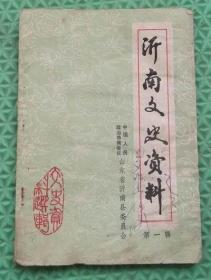 沂南文史资料
中国人民
政治协商会议
山东省沂南县委员会
第一辑
文史资
料选辑